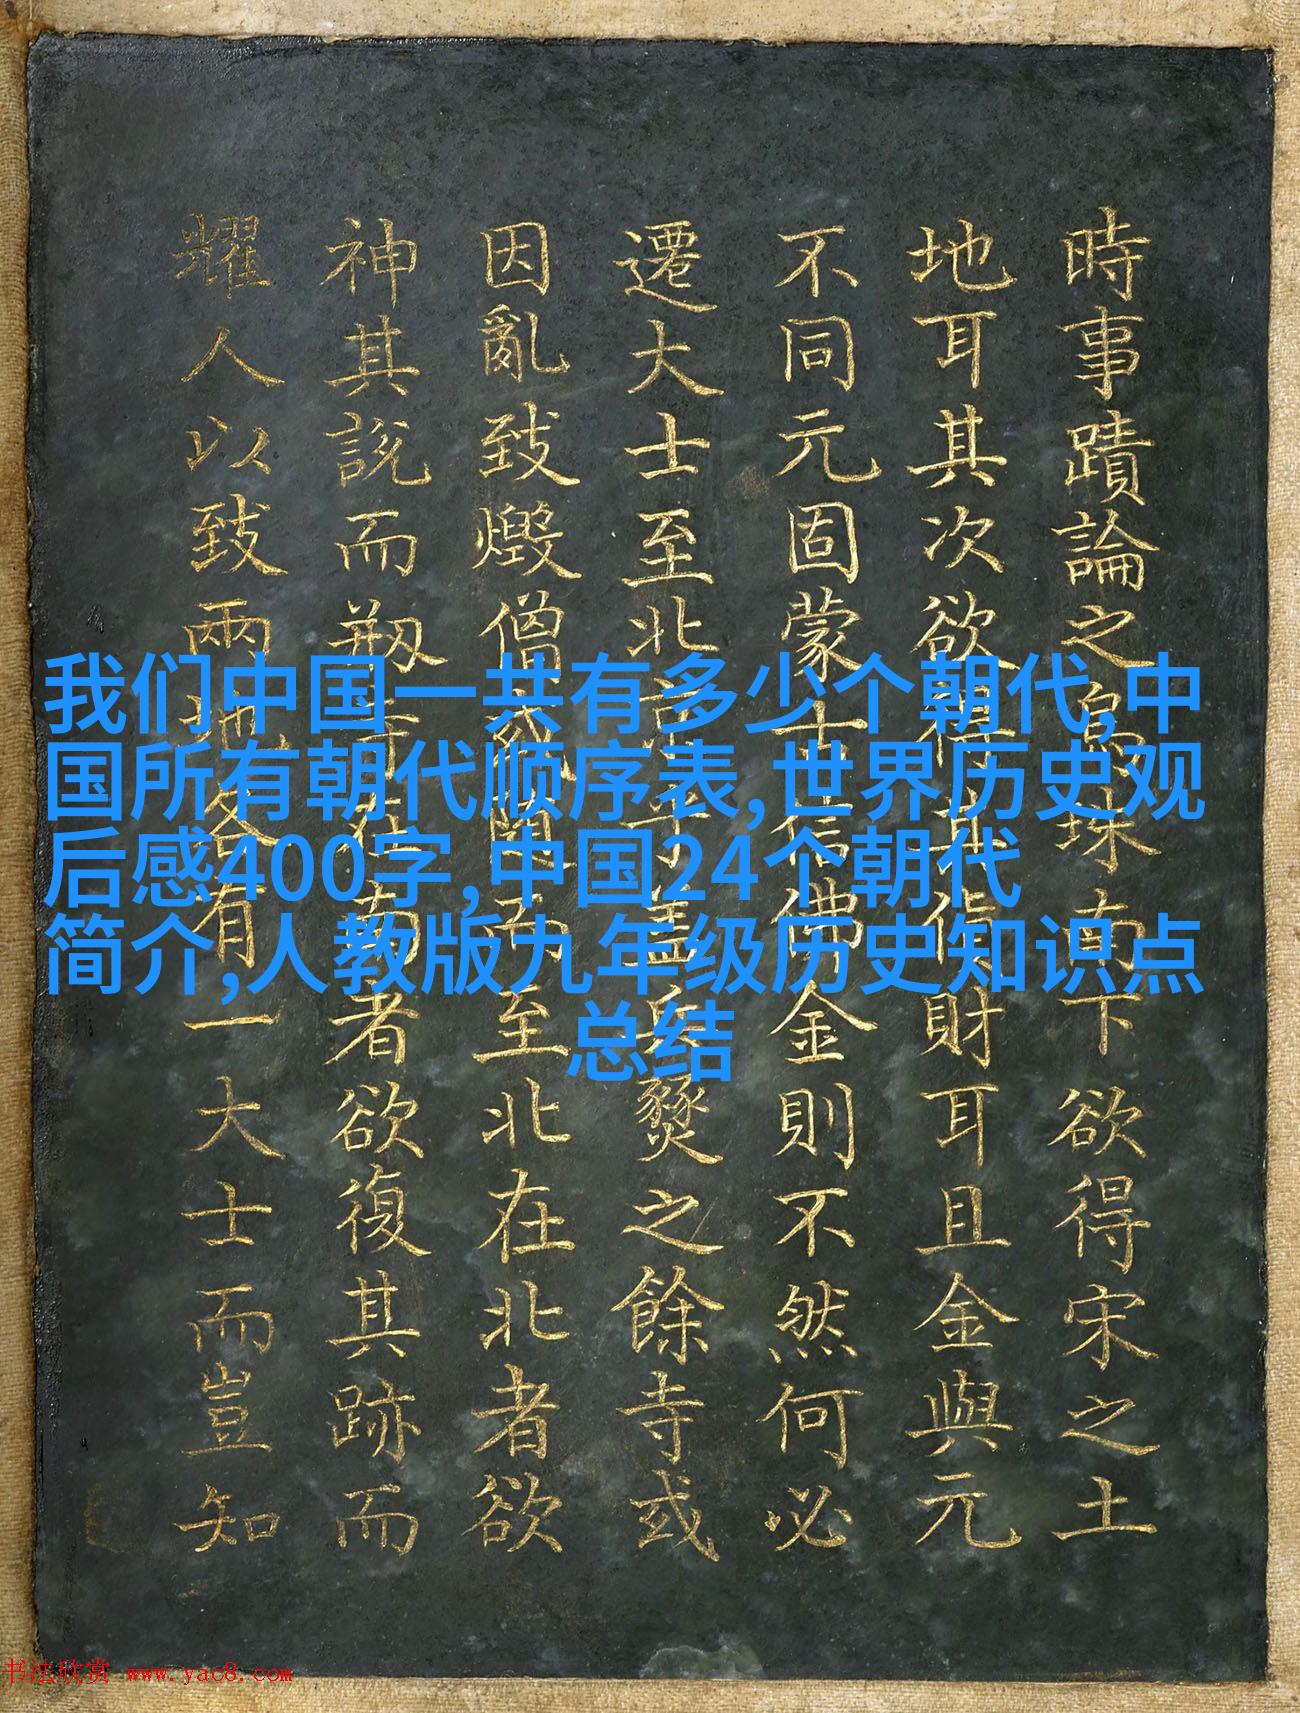 時事蹟論之烏珠南下欲得宋之土
地耳其次欲得其貨財耳且金與元
不同元固蒙古信佛金則不然何必
遷大士至北京乎蓋兵燹之餘寺或
因亂致燬僧或隨而至北在北者欲
神其說而剏寺在南者欲復其跡而
耀人以致兩地各有一大士而豈知
我们中国一共有多少个朝代,中
国所有朝代顺序表,世界历史观
后感400字,中国24个朝代
简介,人教版九年级历史知识点
总结
书法欣赏 www.yac8.com